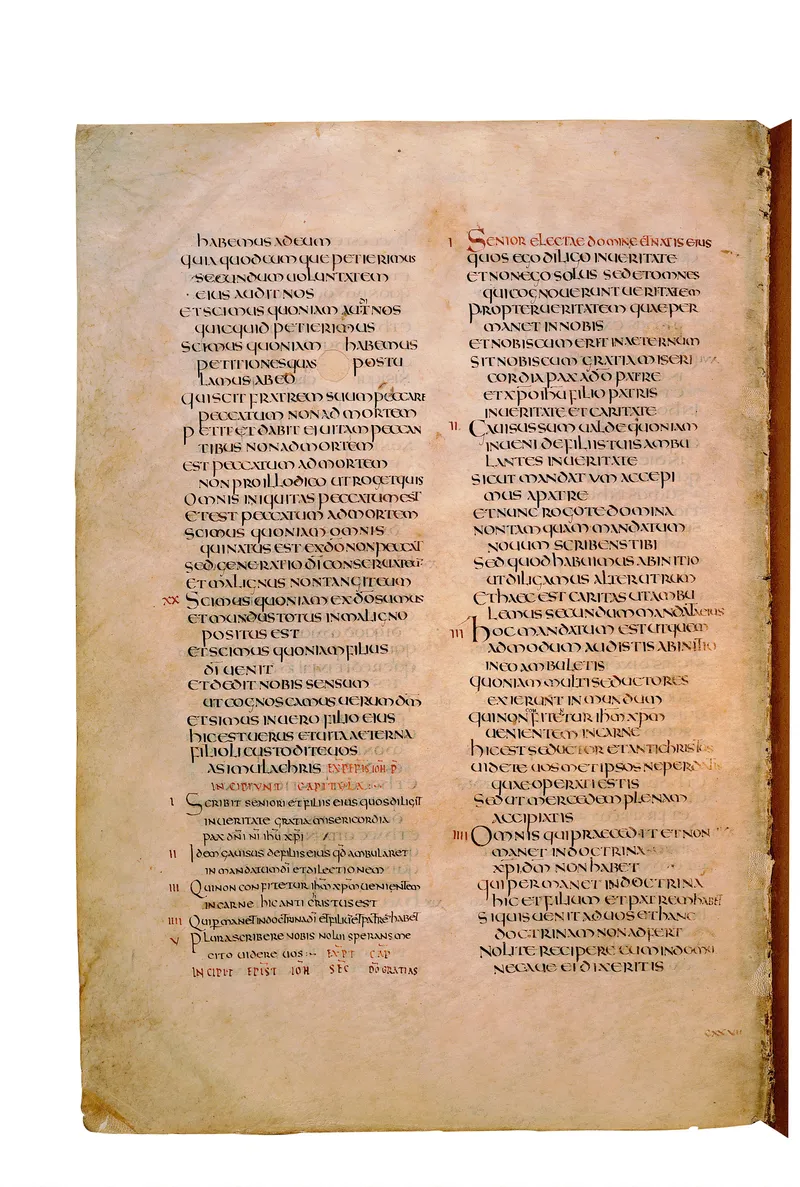 habemus ad eum
quia quodcumque petierimus
secundum uoluntatem
eius audit nos
et scimus quoniam audit nos
quicquid petierimus
scimus quoniam habemus
petitiones quas postu
lamus ab eo
qui scit fratrem suum peccare
peccatum non ad mortem
petit et dabit ei uitam peccan
tibus non ad mortem
est peccatum ad mortem
non pro illo dico ut roget quis
omnis iniquitas peccatum est
et est peccatum ad mortem
scimus quoniam omnis
qui natus est ex d̄o non peccat
sed generatio d̄i conseruat eum
et malignus non tangit eum
XX Scimus quoniam ex d̄o sumus
et mundus totus in maligno
positus est
et scimus quoniam filius
d̄i uenit
et dedit nobis sensum
ut cognoscamus uerum d̄m
et simus in uero filio eius
hic est uerus et uita aeterna
filioli custodite uos
a simulachris EXP EPIS IOH P̄
INCIPIUNT CAPITULA
I Scribit seniori et filiis eius quos diligit
in ueritate gratia misericordia
pax d̄ni n̄i ih̄u xp̄i
II Idem gauisus de filiis eius q̄d ambularet
in mandatum d̄i et dilectionem
III Qui non confitetur ih̄m xp̄m uenientem
in carne hic anticristus est
IIII Qui permanet in doctrina d̄i et filium et patrem habet
V Plura scribere nobis nolui sperans me
cito uidere uos EXP̄T CAP̄
INCIPIT EPIST IOH SEC D̄O GRATIAS
I Senior electae domine et natis eius
quos ego diligo in ueritate
et non ego solus sed et omnes
qui cognouerunt ueritatem
propter ueritatem quae per
manet in nobis
et nobiscum erit in aeternum
sit nobiscum gratia miseri
cordia pax a d̄o patre
et xp̄o ih̄u filio patris
in ueritate et caritate
II Gauisus sum ualde quoniam
inueni de filiis tuis ambu
lantes in ueritate
sicut mandatum accepi
mus a patre
et nunc rogo te domina
non tamquam mandatum
nouum scribens tibi
sed quod habuimus ab initio
ut diligamus alterutrum
et haec est caritas ut ambu
lemus secundum mandata eius
III hoc mandatum est ut quem
admodum audistis ab initio
in eo ambuletis
quoniam multi seductores
exierunt in mundum
qui non confitentur ih̄m xp̄m
uenientem in carne
hic est seductor et antichristus
uidete uosmet ipsos ne perdatis
quae operati estis
sed ut mercedem plenam
accipiatis
IIII Omnis qui praecedit et non
manet in doctrina
xp̄i d̄m non habet
qui permanet in doctrina
hic et filium et patrem habet
si quis uenit ad uos et hanc
doctrinam non adfert
nolite recipere eum in domu
neque ei dixeritis